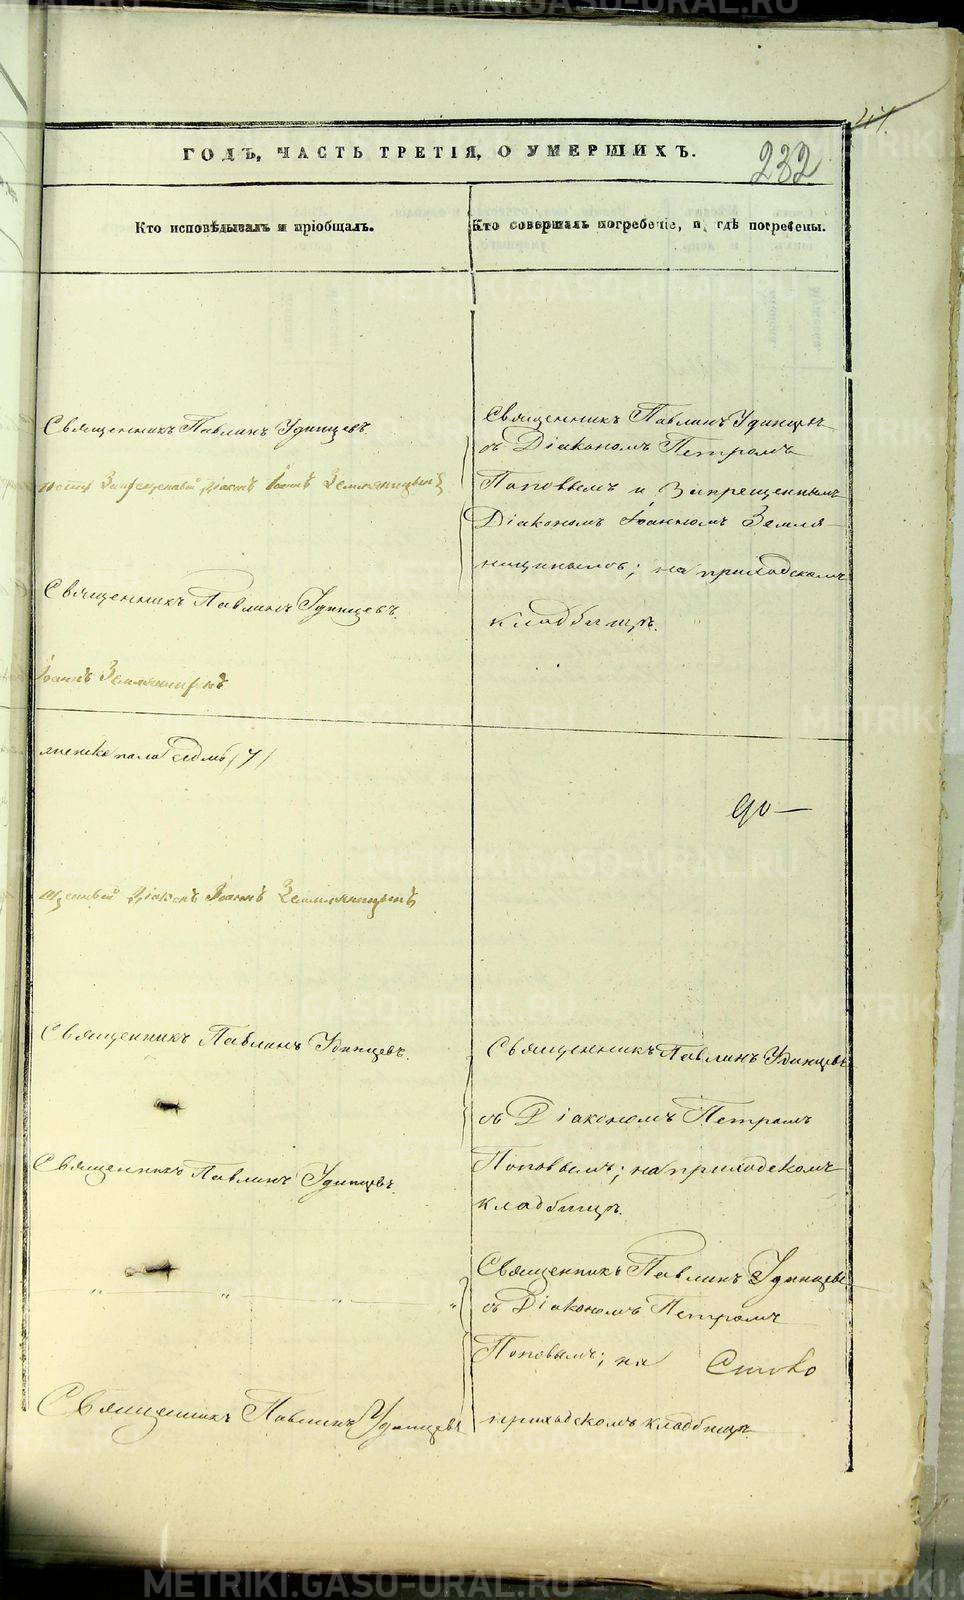 ГОДЪ, ЧАСТЬ ТРЕТІЯ, О УМЕРШИХЪ.
232
Кто исповѣдывалъ и пріобщалъ.
Кто совершалъ погребеніе, и гдѣ погребены.
Священникъ Павлинъ Удинцевъ.
Священникъ Павлинъ Удинцевъ
съ Діакономъ Петромъ
Діаконъ Іоаннъ Земляницынъ
Поповымъ и Запрещеннымъ
Діакономъ Іоанномъ Земля-
ницынымъ; на приходскомъ
Священникъ Павлинъ Удинцевъ.
кладбищѣ.
Іоаннъ Земляницынъ
седмь (7)
щенный Діаконъ Іоаннъ Земляницынъ
Священникъ Павлинъ Удинцевъ.
Священникъ Павлинъ Удинцевъ
съ Діакономъ Петромъ
Священникъ Павлинъ Удинцевъ.
Поповымъ; на приходскомъ
кладбищѣ.
Священникъ Павлинъ Удинцевъ
" " " "
съ Діакономъ Петромъ
Поповымъ; на
Священникъ Павлинъ Удинцевъ
приходскомъ кладбищѣ.
METRIKI.GASO-URAL.RU